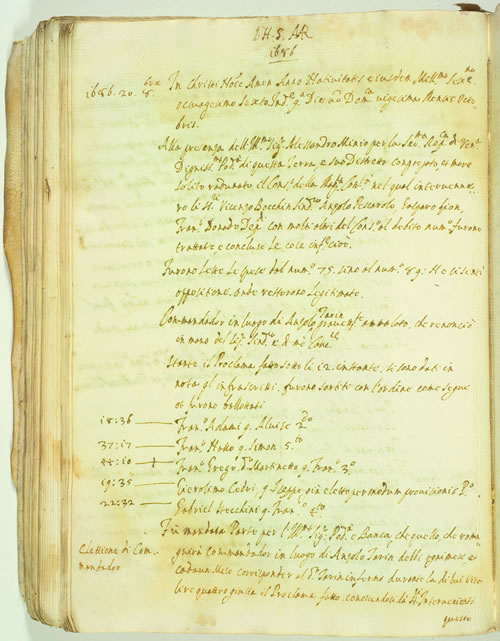 1686
1686. 20. 8bre In Christi Noie Amen Anno Nativitatis eiusdem Mill.mo Sex.mo
octuagesimo Sexto Ind.e 9.a Die vero Dom.ca vigesima Mensis Octo
bris.
Alla presenza dell' Ill.mo Sig.r Alessandro Minio per la Ser.ma Rep.ca di Ven.a
Dignis.o Pod.à di questa Terra, e suo Destretto congregato, et more
solito radunato il Cons.o della Mag.ca Com.tà nel qual intervenne
ro li SS.ri Vicenzo Bocchin Sind.co Angolo Pescarolo,
Fran.co Donado Dep.i con molti altri del Cons.o al debito num.o furono
trattate e concluse le cose inf.te cioè.
Furono lette le spese dal num.o 75. sino al num.o 89: Ne vi senti
oppositione, onde restorono legitimate.
Commandador in luogo de Angolo Tarin ammalato, che renonciò
in mano del Sig.r Sind.co e di me Canc.re
Stante il Proclama fatto sotto li 12. instante, si sono dati in
nota gl'infrascritti, furono sortiti con l'ordine come segue
et furono ballottati
18:36 Fran.co Adami q. Aluise 2.do
37:17 Fran.co Hatto q. Simon 5.to
44:10 Fran.co Grego d.o Martinetto q. Fran.co 3.o
19:35 Gierolemo q. Iseppo già eletto per modum provisionis P.o
22:32 Gabriel Stecchini q. Fran.co 4.to
Elettione di Com
mandador
Fù mandata Parte per l'Ill.mo Sig.r Pod.à e Banca, che quello che rema
gnirà Commandador in luogo di Angolo Tarin debbi
cadaun Mese corisponder al S.r Tarin infermo durante la di lui vita
lire quattro giusta il Proclama fatto,
questo